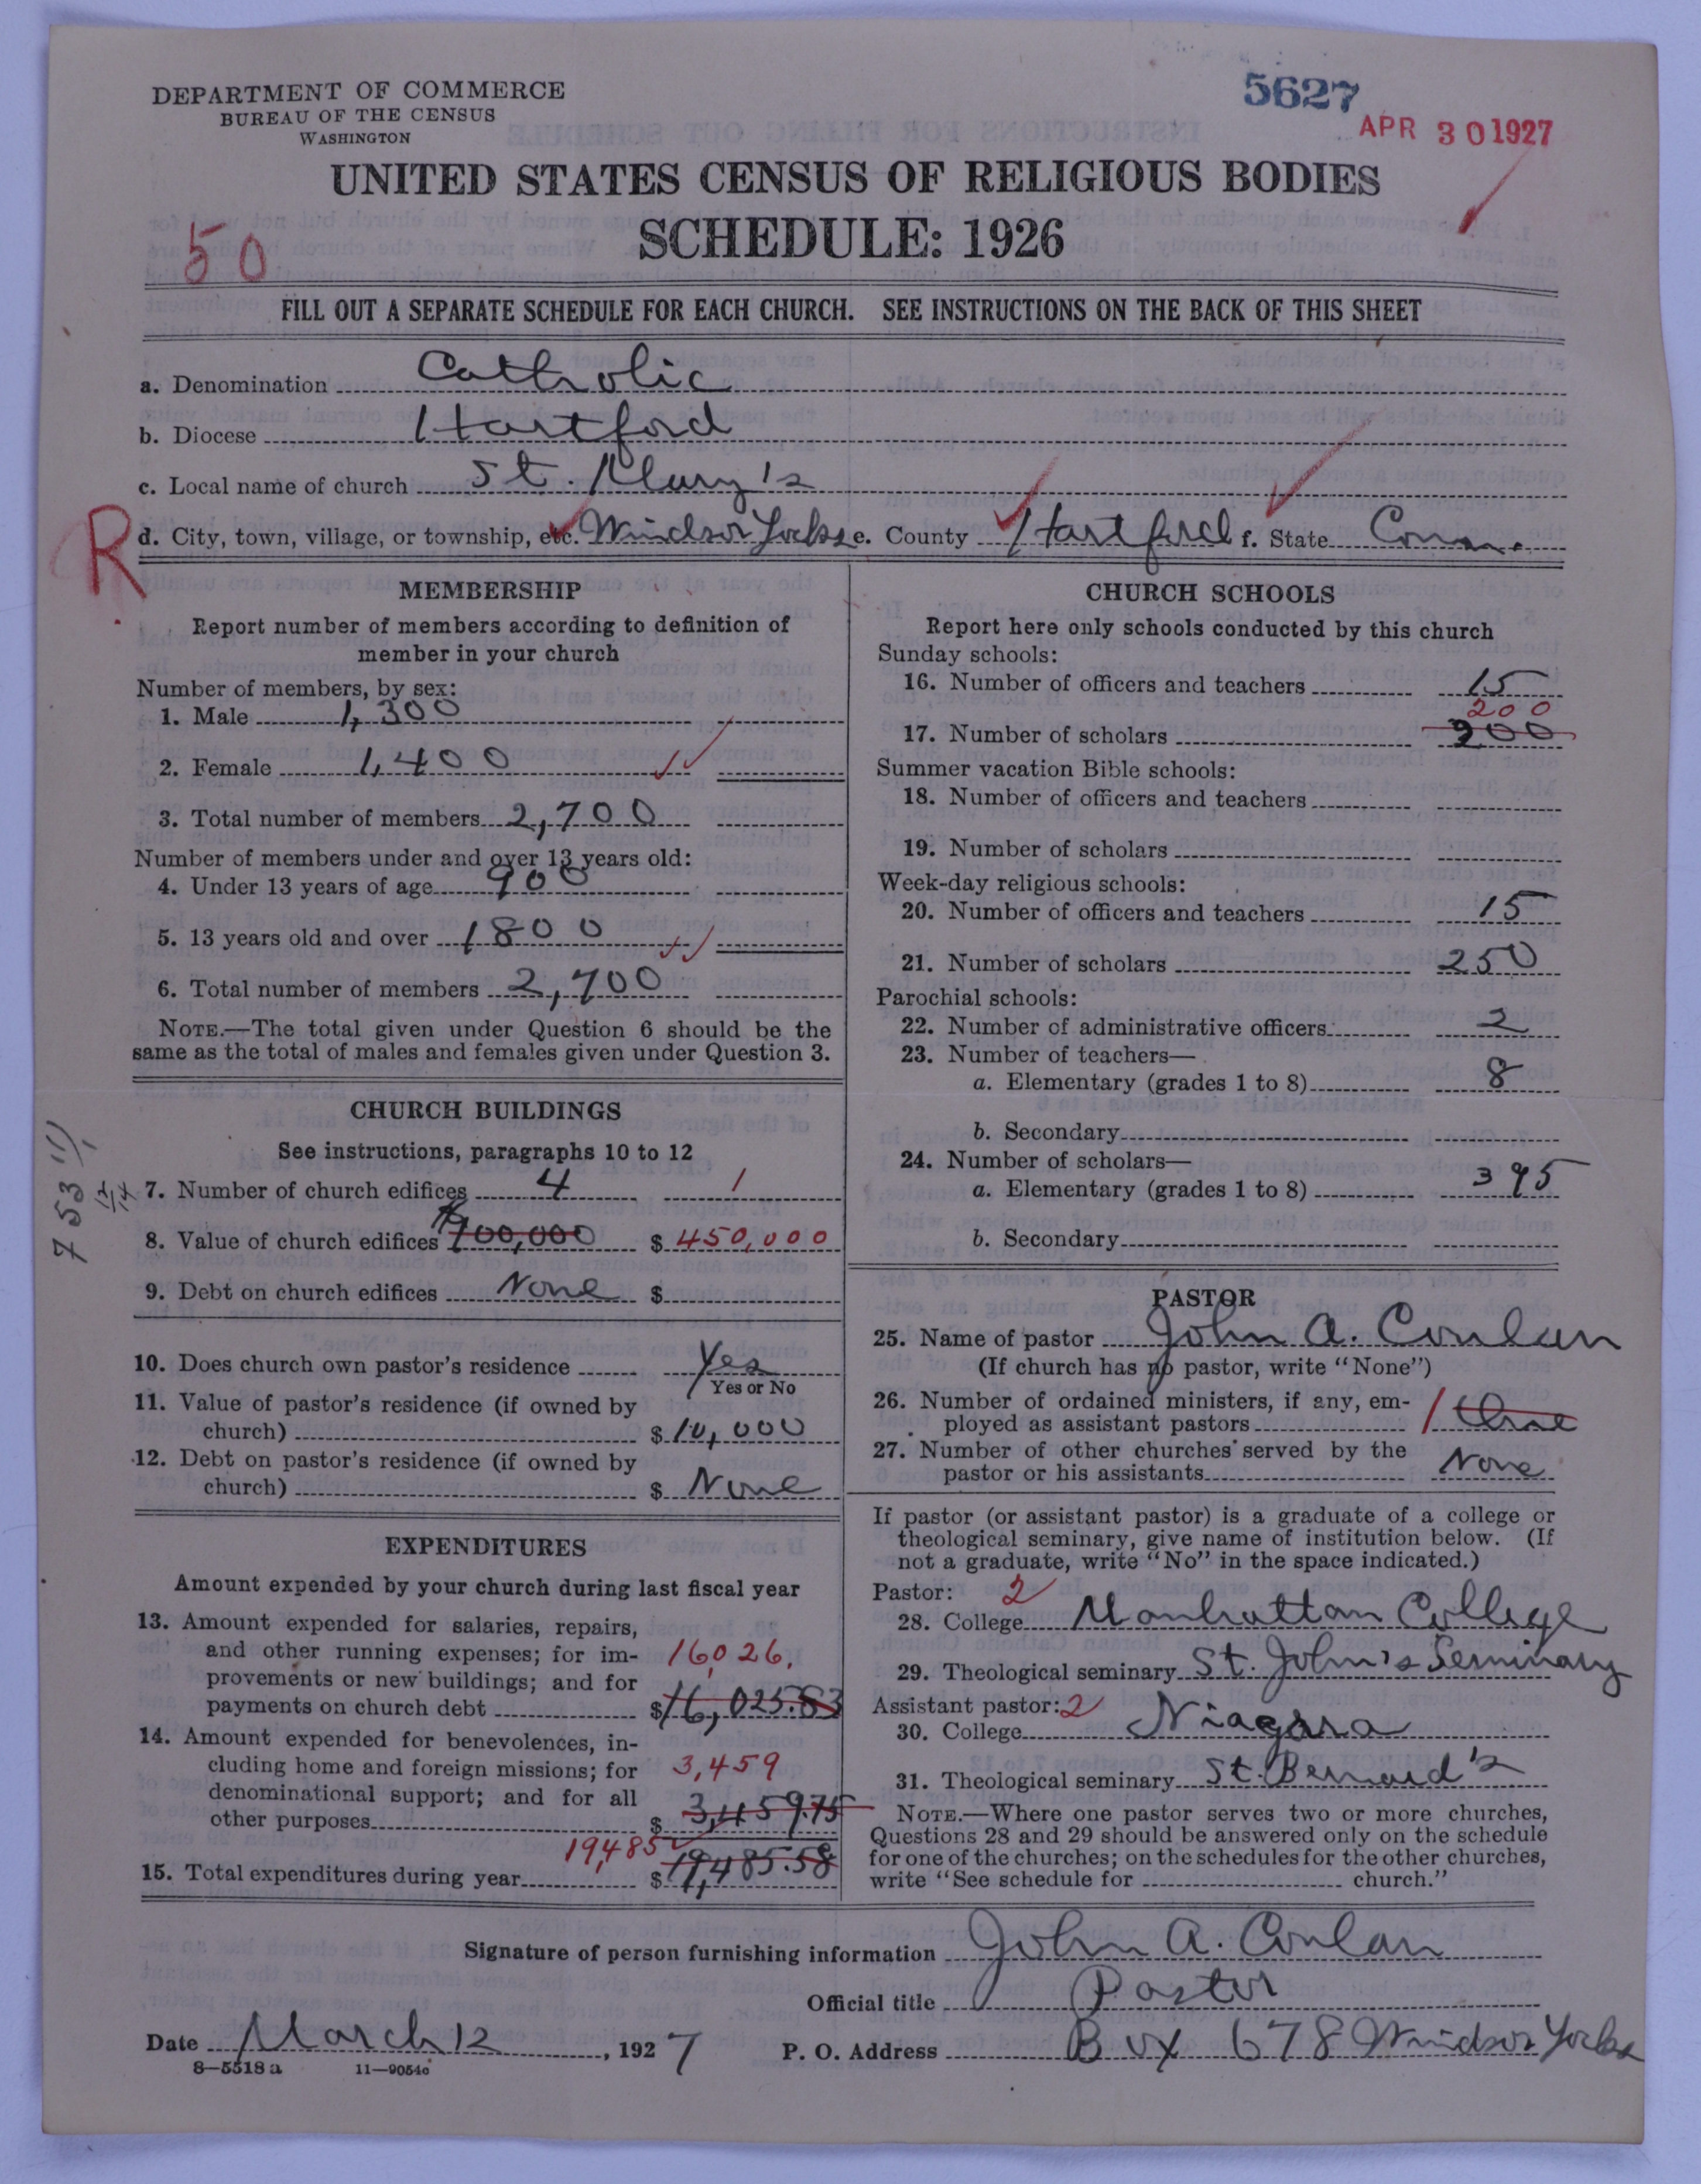 DEPARTMENT OF COMMERCE
BUREAU OF THE CENSUS
WASHINGTON
5627
APR 30 1927
UNITED STATES CENSUS OF RELIGIOUS BODIES
SCHEDULE: 1926
50
FILL OUT A SEPARATE SCHEDULE FOR EACH CHURCH. SEE INSTRUCTIONS ON THE BACK OF THIS SHEET
a. Denomination Catholic
b. Diocese Hartford
c. Local name of church St. Mary's
R
d. City, town, village, or township, etc. Windsor Locks e. County Hartford f. State Conn.
MEMBERSHIP
Report number of members according to definition of
member in your church
Number of members, by sex:
1. Male 1,300
2. Female 1,400
3. Total number of members 2,700
Number of members under and over 13 years old:
4. Under 13 years of age 900
5. 13 years old and over 1800
6. Total number of members 2,700
NOTE.—The total given under Question 6 should be the
same as the total of males and females given under Question 3.
CHURCH BUILDINGS
See instructions, paragraphs 10 to 12
7. Number of church edifices 4 1
8. Value of church edifices $ 450,000
9. Debt on church edifices None $
10. Does church own pastor's residence Yes
Yes or No
11. Value of pastor's residence (if owned by
church) $ 10,000
12. Debt on pastor's residence (if owned by
church) $ None
EXPENDITURES
Amount expended by your church during last fiscal year
13. Amount expended for salaries, repairs,
and other running expenses; for im- 16,026.
provements or new buildings; and for
payments on church debt $ 16,025.83
14. Amount expended for benevolences, in-
cluding home and foreign missions; for 3,459
denominational support; and for all
other purposes $ 3,459.75
19,485
15. Total expenditures during year $ 19,485.58
CHURCH SCHOOLS
Report here only schools conducted by this church
Sunday schools:
16. Number of officers and teachers 15
200
17. Number of scholars 200
Summer vacation Bible schools:
18. Number of officers and teachers
19. Number of scholars
Week-day religious schools:
20. Number of officers and teachers 15
21. Number of scholars 250
Parochial schools:
22. Number of administrative officers 2
23. Number of teachers—
a. Elementary (grades 1 to 8) 8
b. Secondary
24. Number of scholars—
a. Elementary (grades 1 to 8) 395
b. Secondary
PASTOR
25. Name of pastor John A. Conlan
(If church has no pastor, write "None")
26. Number of ordained ministers, if any, em- 1
ployed as assistant pastors
27. Number of other churches served by the
pastor or his assistants None
If pastor (or assistant pastor) is a graduate of a college or
theological seminary, give name of institution below. (If
not a graduate, write "No" in the space indicated.)
Pastor: 2
28. College Manhattan College
29. Theological seminary St. John's Seminary
Assistant pastor: 2
30. College Niagara
31. Theological seminary St. Bernard's
NOTE.—Where one pastor serves two or more churches,
Questions 28 and 29 should be answered only on the schedule
for one of the churches; on the schedules for the other churches,
write "See schedule for church."
Signature of person furnishing information John A. Conlan
Official title Pastor
Date March 12, 1927 P. O. Address Box 678 Windsor Locks
8—5518 a 11—9054c